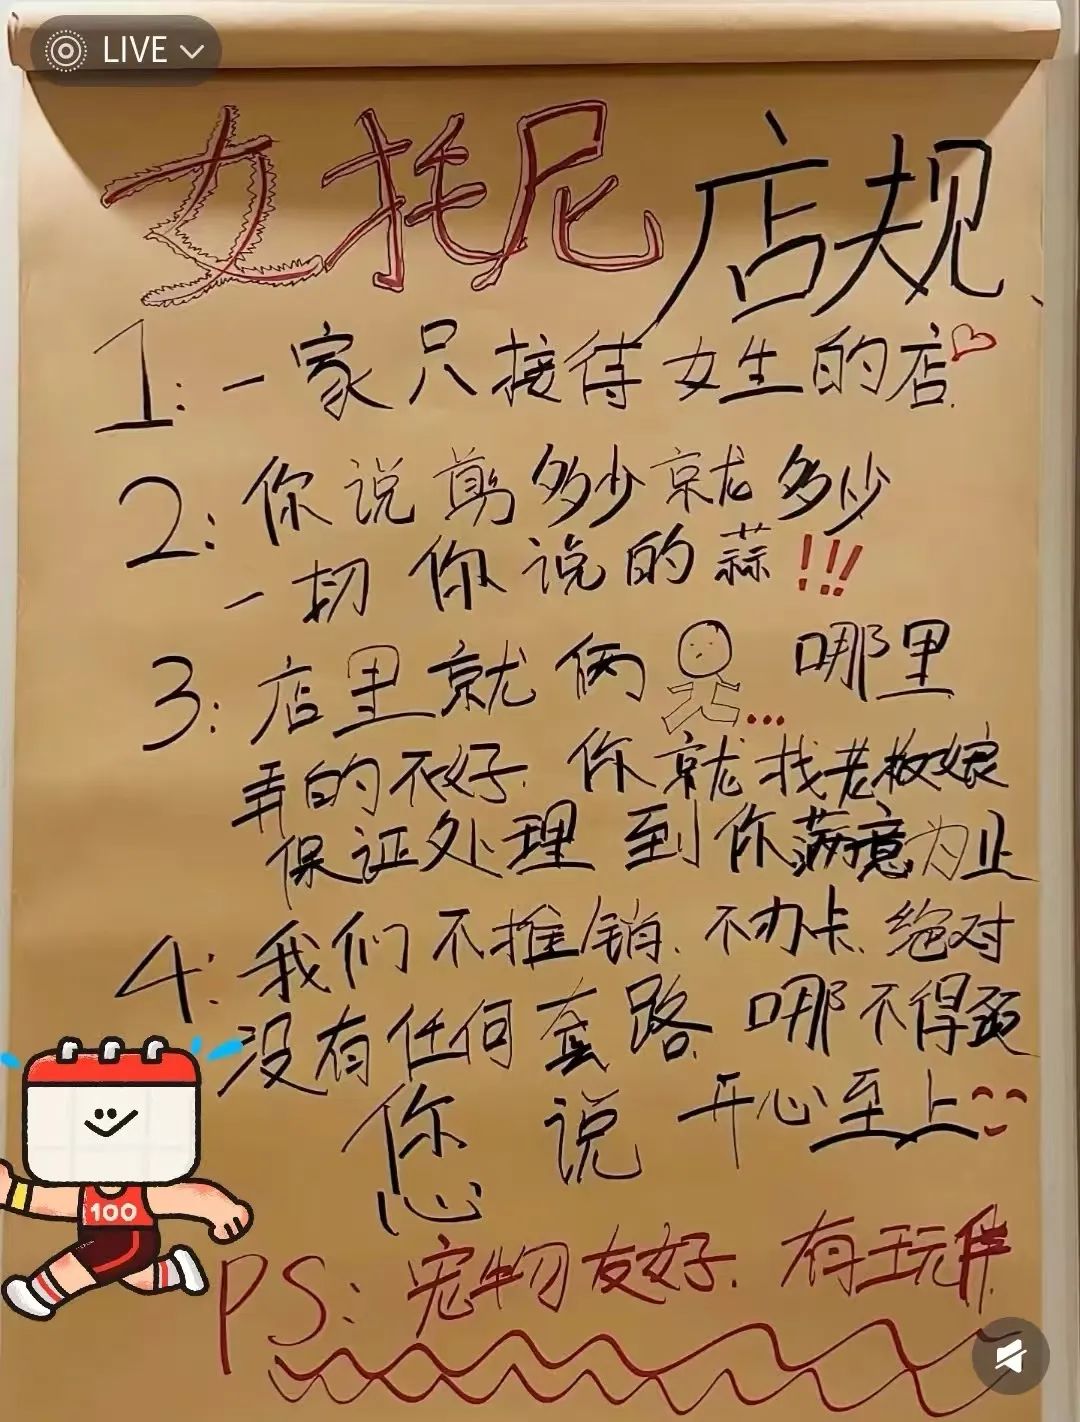 LIVE
女托尼 店规
1: 一家只接待女生的店
2: 你说剪多少就多少
一切你说的蒜!!!
3: 店里就俩 ... 哪里
弄的不好. 你就找老板娘
保证处理 到你满意为止
4: 我们不推销. 不办卡. 绝对
没有任何套路. 哪不得
您 说 开心至上
100
PS: 宠物友好. 有玩伴